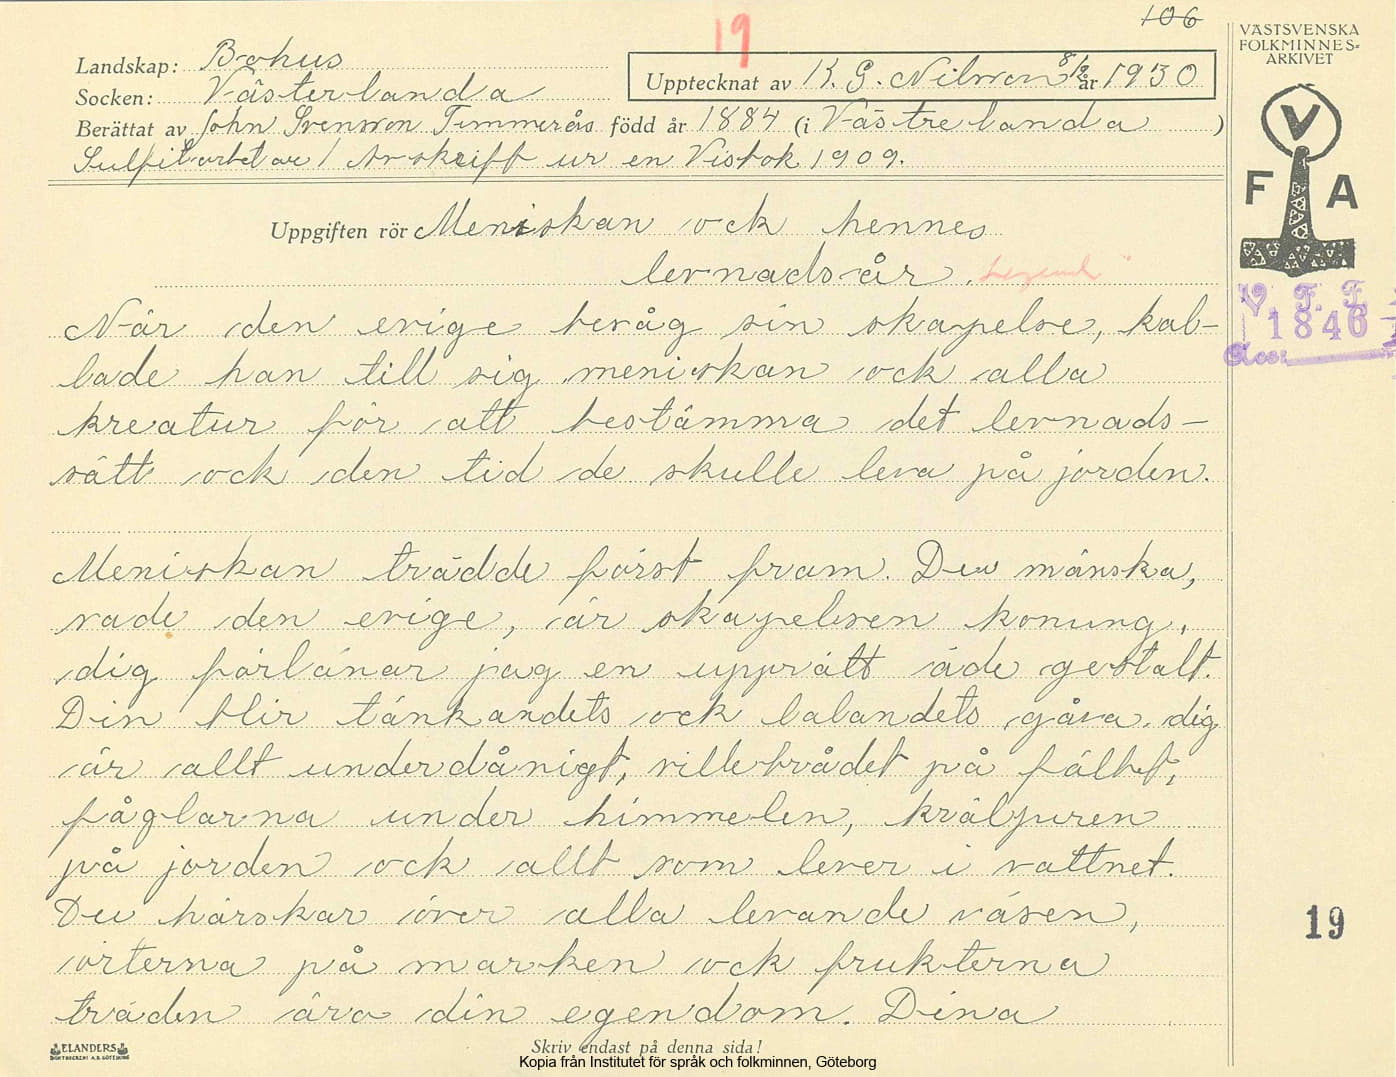 106
19
VÄSTSVENSKA
FOLKMINNES-
ARKIVET
Landskap: Bohus
Socken: Västerlanda
Upptecknat av K. G. Nilsson 8/2 år 1930
Berättat av John Svensson Timmerås född år 1884 (i Västrelanda )
Sulfitarbetare / Avskrift ur en Visbok 1909.
V
F A
Uppgiften rör Meniskan ock hennes
levnads-år. Legend
V. F. F.
1846
Acc:
När den evige besåg sin skapelse, kal-
lade han till sig meniskan ock alla
kreatur för att bestämma det levnads-
sätt ock den tid de skulle leva på jorden.
Meniskan trädde först fram. Du mänska,
sade den evige, är skapelsen konung,
dig förlänar jag en upprätt äde gestalt.
Din blir tänkandets ock lalandets gåva. dig
är allt underdånigt, villebrådet på fältet,
fåglarna under himmelen, kräljuren
på jorden ock allt som lever i vattnet.
Du härskar över alla levande väsen,
örterna på marken ock frukterna
träden äro din egendom. Dina
19
ELANDERS
BOKTRYCKERI A.B. GÖTEBORG
Skriv endast på denna sida!
Kopia från Institutet för språk och folkminnen, Göteborg